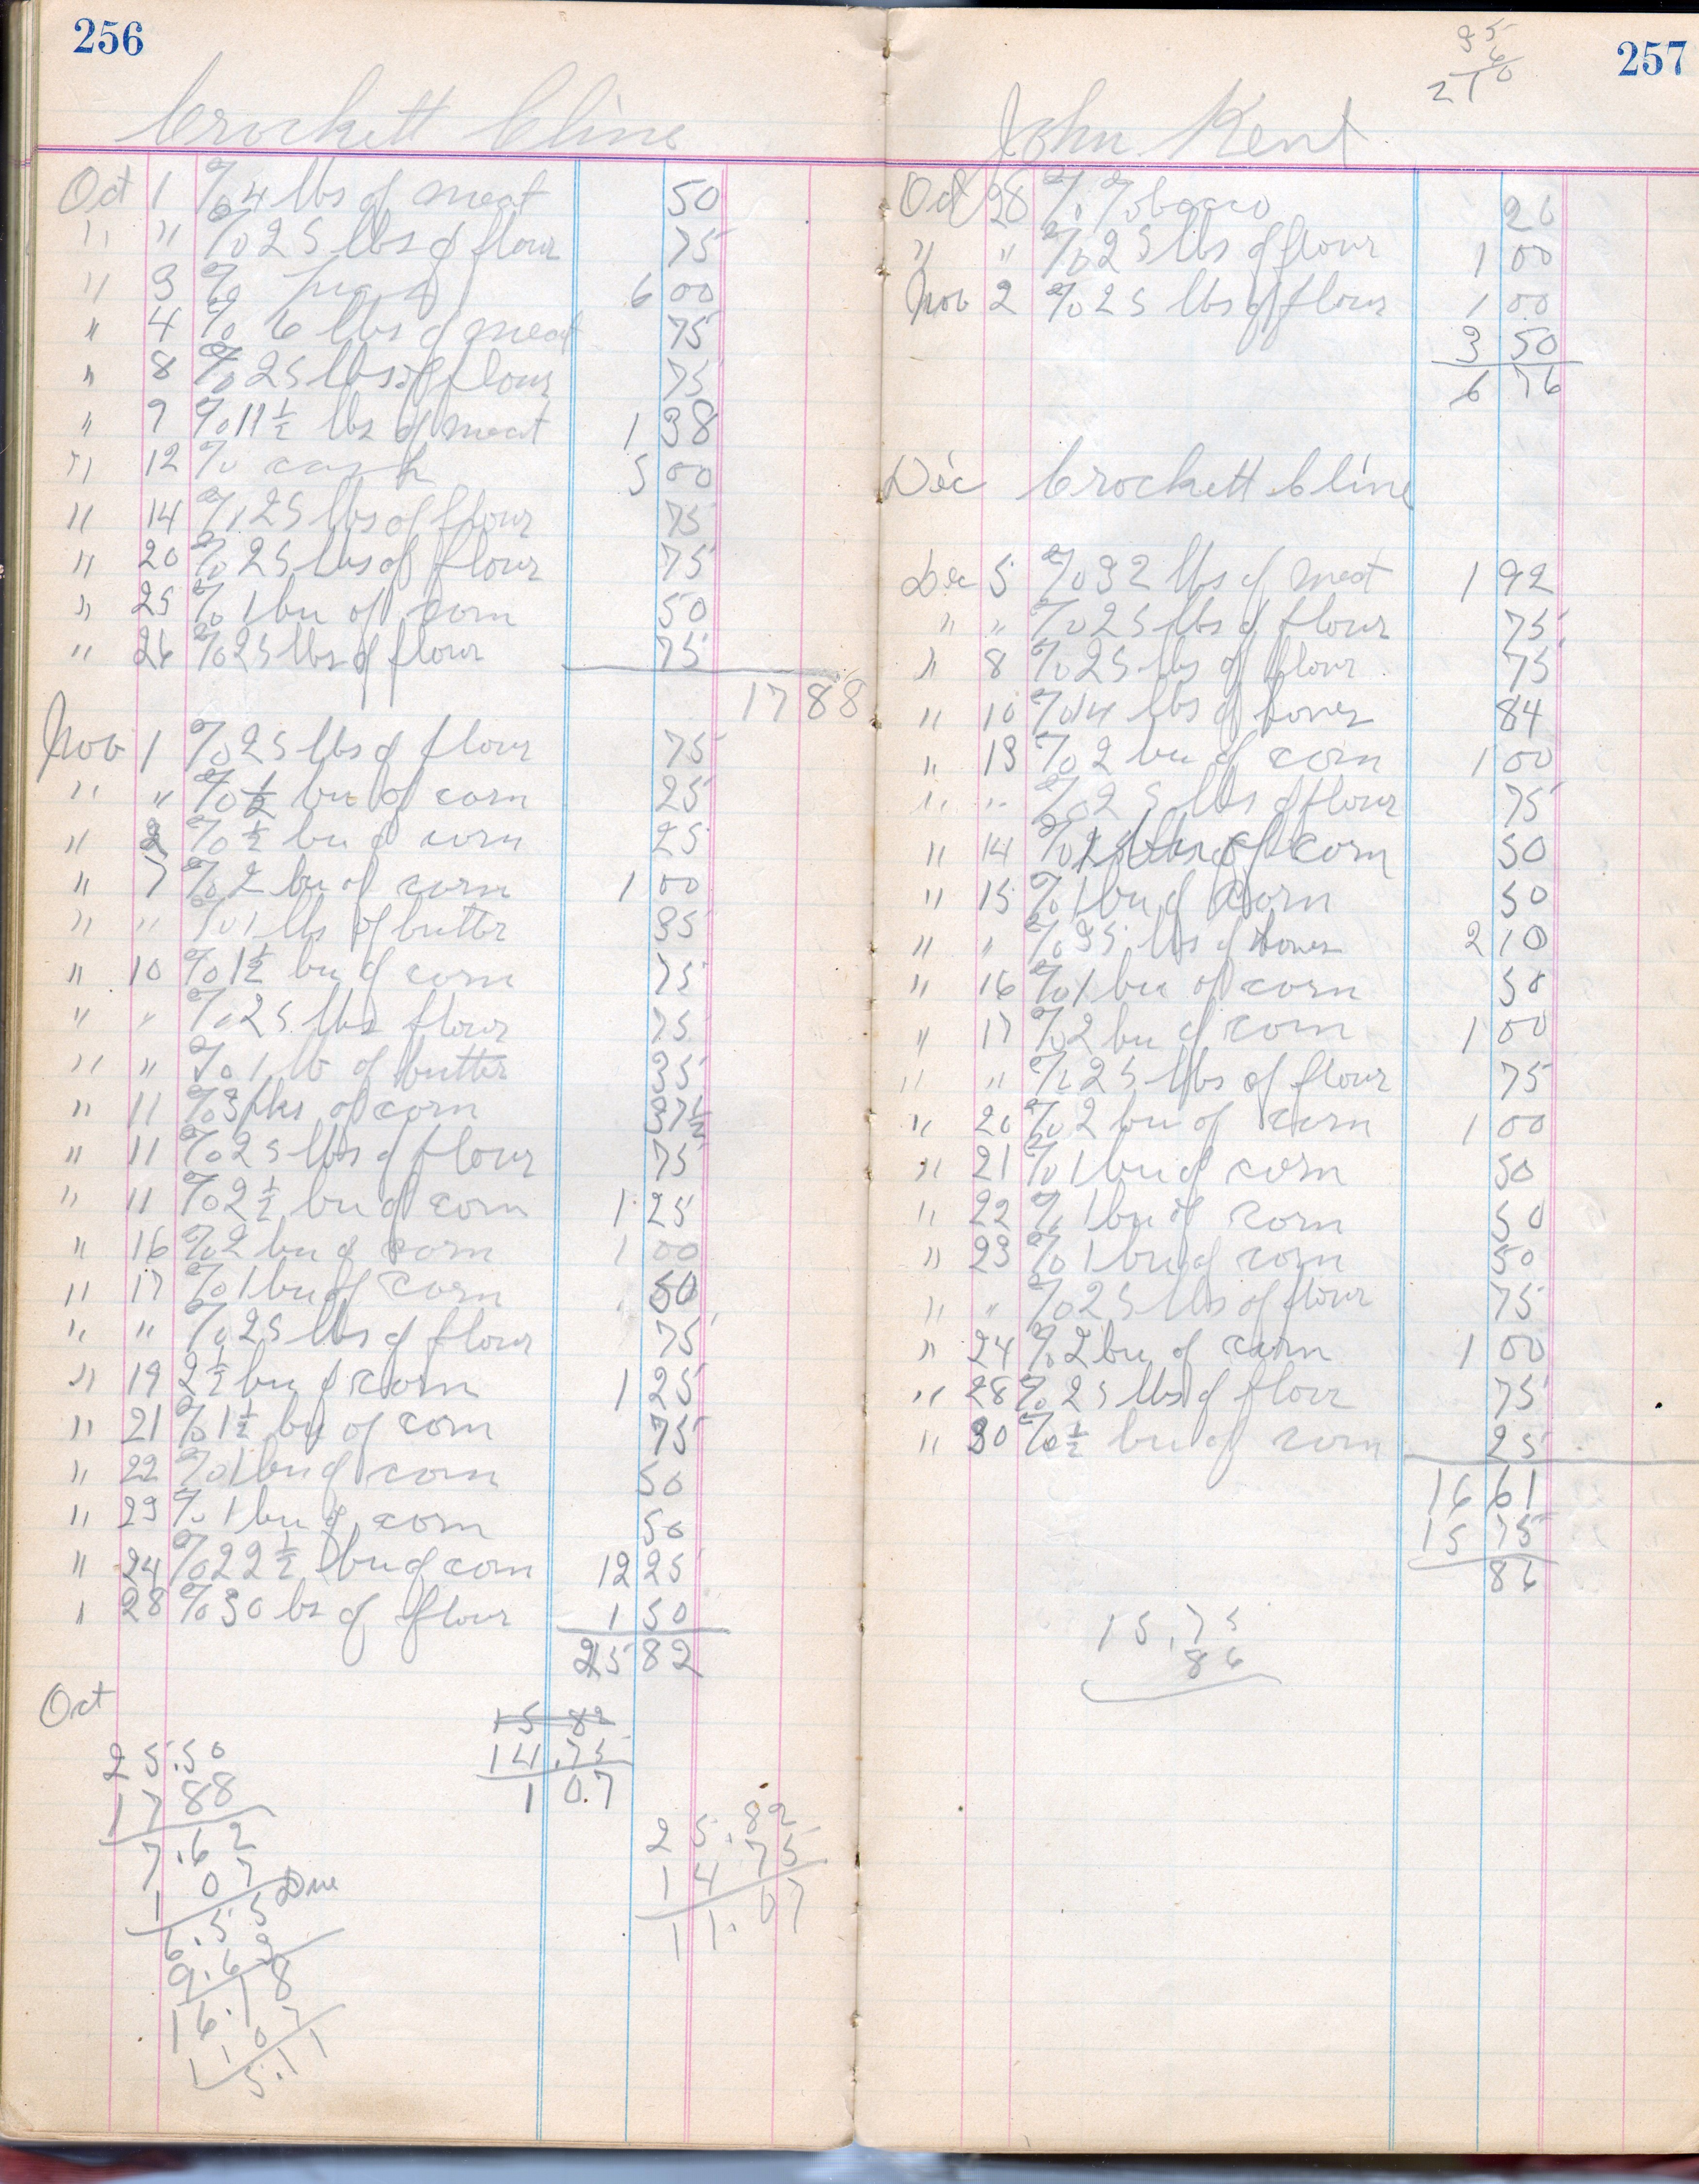 256
Crockett Cline
Oct 1 % 4 lbs of meat 50
" " % 25 lbs of flour 75
" 3 % 6 00
" 4 % 6 lbs of meat 75
" 8 % 25 lbs of flour 75
" 9 % 11 1/2 lbs of meat 1 38
" 12 % cash 5 00
" 14 % 25 lbs of flour 75
" 20 % 25 lbs of flour 75
" 25 % 1 bu of corn 50
" 26 % 25 lbs of flour 75
17 88
Nov 1 % 25 lbs of flour 75
" " % 1/2 bu of corn 25
" 2 % 1/2 bu of corn 25
" 7 % 2 bu of corn 1 00
" " % 1 lbs of butter 35
" 10 % 1 1/2 bu of corn 75
" " % 25 lbs flour 75
" " % 1 lb of butter 35
" 11 % 3 pks of corn 37 1/2
" 11 % 25 lbs of flour 75
" 11 % 2 1/2 bu of corn 1 25
" 16 % 2 bu of corn 1 00
" 17 % 1 bu of corn 50
" " % 25 lbs of flour 75
" 19 2 1/2 bu of corn 1 25
" 21 % 1 1/2 bu of corn 75
" 22 % 1 bu of corn 50
" 23 % 1 bu of corn 50
" 24 % 22 1/2 bu of corn 12 25
" 28 % 50 lbs of flour 1 50
25 82
Oct
15 82
14.75
1 0.7
25.50
17 88
7.62
1 07 Due
6.55
9.63
16.18
1 07
15.11
25.82
14 75
11.07
257
35
6
210
John Kent
Oct 28 % Tobacco 26
" " % 25 lbs of flour 1 00
Nov 2 % 25 lbs of flour 1 00
3 50
6 76
Dec Crockett Cline
Dec 5 % 32 lbs of meat 1 92
" " % 25 lbs of flour 75
" 8 % 25 lbs of flour 75
" 10 % 14 lbs of bones 84
" 13 % 2 bu of corn 1 00
" " % 25 lbs of flour 75
" 14 % of corn 50
" 15 % 1 bu of corn 50
" " % 35 lbs of bones 2 10
" 16 % 1 bu of corn 50
" 17 % 2 bu of corn 1 00
" " % 25 lbs of flour 75
" 20 % 2 bu of corn 1 00
" 21 % 1 bu of corn 50
" 22 % 1 bu of corn 50
" 23 % 1 bu of corn 50
" " % 25 lbs of flour 75
" 24 % 2 bu of corn 1 00
" 28 % 25 lbs of flour 75
" 30 % 1/2 bu of corn 25
16 61
15 75
86
15.75
86